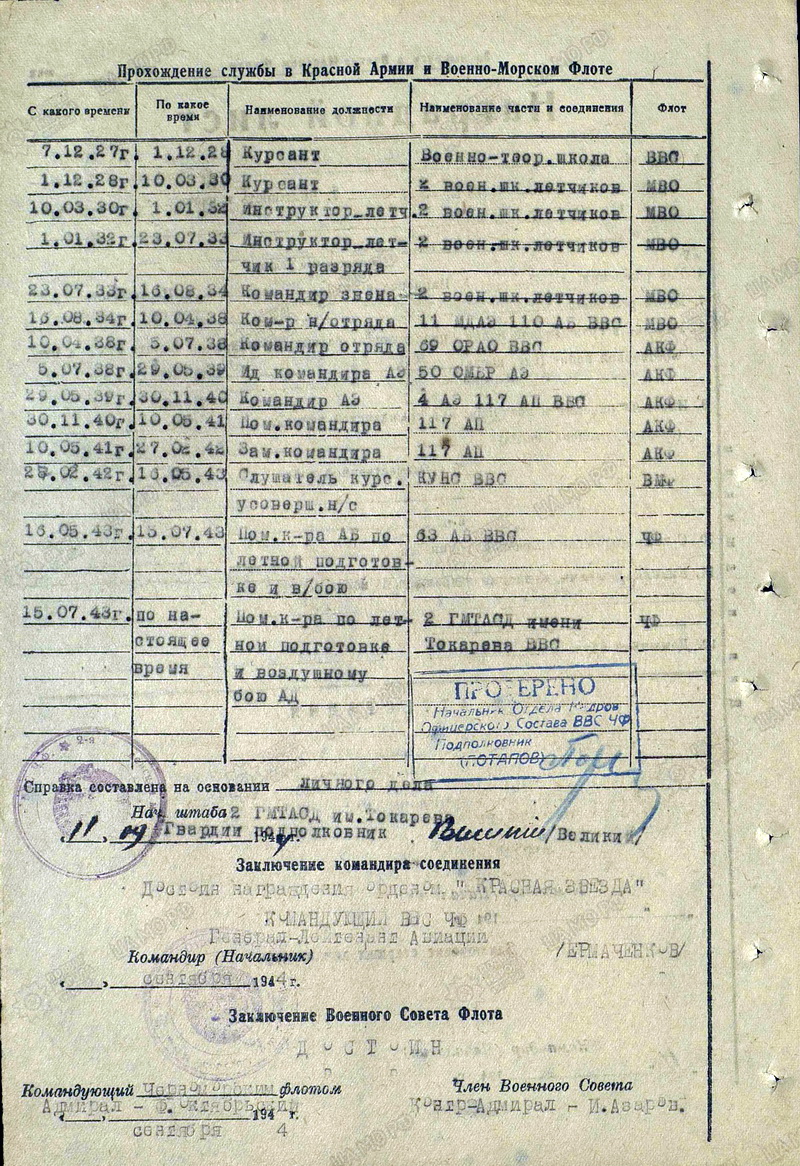 Прохождение службы в Красной Армии и Военно-Морском Флоте
С какого времени | По какое время | Наименование должности | Наименование части и соединения | Флот
7.12.27г. 1.12.28 Курсант Военно-теор.школа ВВС
1.12.28г. 10.03.30 Курсант 2 воен.шк.летчиков МВО
10.03.30г. 1.01.32 Инструктор-летч. 2 воен.шк.летчиков МВО
1.01.32г. 23.07.33 Инструктор-лет- 2 воен.шк.летчиков МВО
чик 1 разряда
23.07.33г. 16.08.34 Командир звена 2 воен.шк.летчиков МВО
16.08.34г. 10.04.38 Ком-р н/отряда 11 110 АБ ВВС МВО
10.04.38г. 5.07.38 Командир отряда 69 ОРАО ВВС АКФ
5.07.38г. 29.05.39 Ид командира АЭ 50 ОМБР АЭ АКФ
29.05.39г. 30.11.40 Командир АЭ 4 АЭ 117 АП ВВС АКФ
30.11.40г. 10.05.41 Пом.командира 117 АП АКФ
10.05.41г. 27.02.42 Зам.командира 117 АП АКФ
27.02.42г. 16.05.43 Слушатель курс. КУНС ВВС ВМФ
усоверш.н/с
16.05.43г. 15.07.43 Пом.к-ра АБ по 63 АБ ВВС ЧФ
летной подготов-
ке и в/бою
15.07.43г. по на- Пом.к-ра по лет- 2 ГМТАСД имени ЧФ
стоящее ном подготовке Токарева ВВС
время и воздушному
бою АД
ПРОВЕРЕНО
Начальник Отдела Кадров
Офицерского Состава ВВС ЧФ
Подполковник
(ПОТАПОВ)
Справка составлена на основании личного дела
Нач. штаба 2 ГМТАСД им.Токарева
"11" 09 1944г. Гвардии подполковник /Великий/
Заключение командира соединения
Достоин награждения орденом "КРАСНАЯ ЗВЕЗДА"
КОМАНДУЮЩИЙ ВВС ЧФ
Генерал-Лейтенант Авиации
Командир (Начальник) /ЕРМАЧЕНКОВ/
" " сентября 1944г.
Заключение Военного Совета Флота
ДОСТОИН
Командующий Черноморским флотом Член Военного Совета
Адмирал - Ф.Октябрьский Контр-Адмирал - И.Азаров.
" " 194 г.
сентября 4